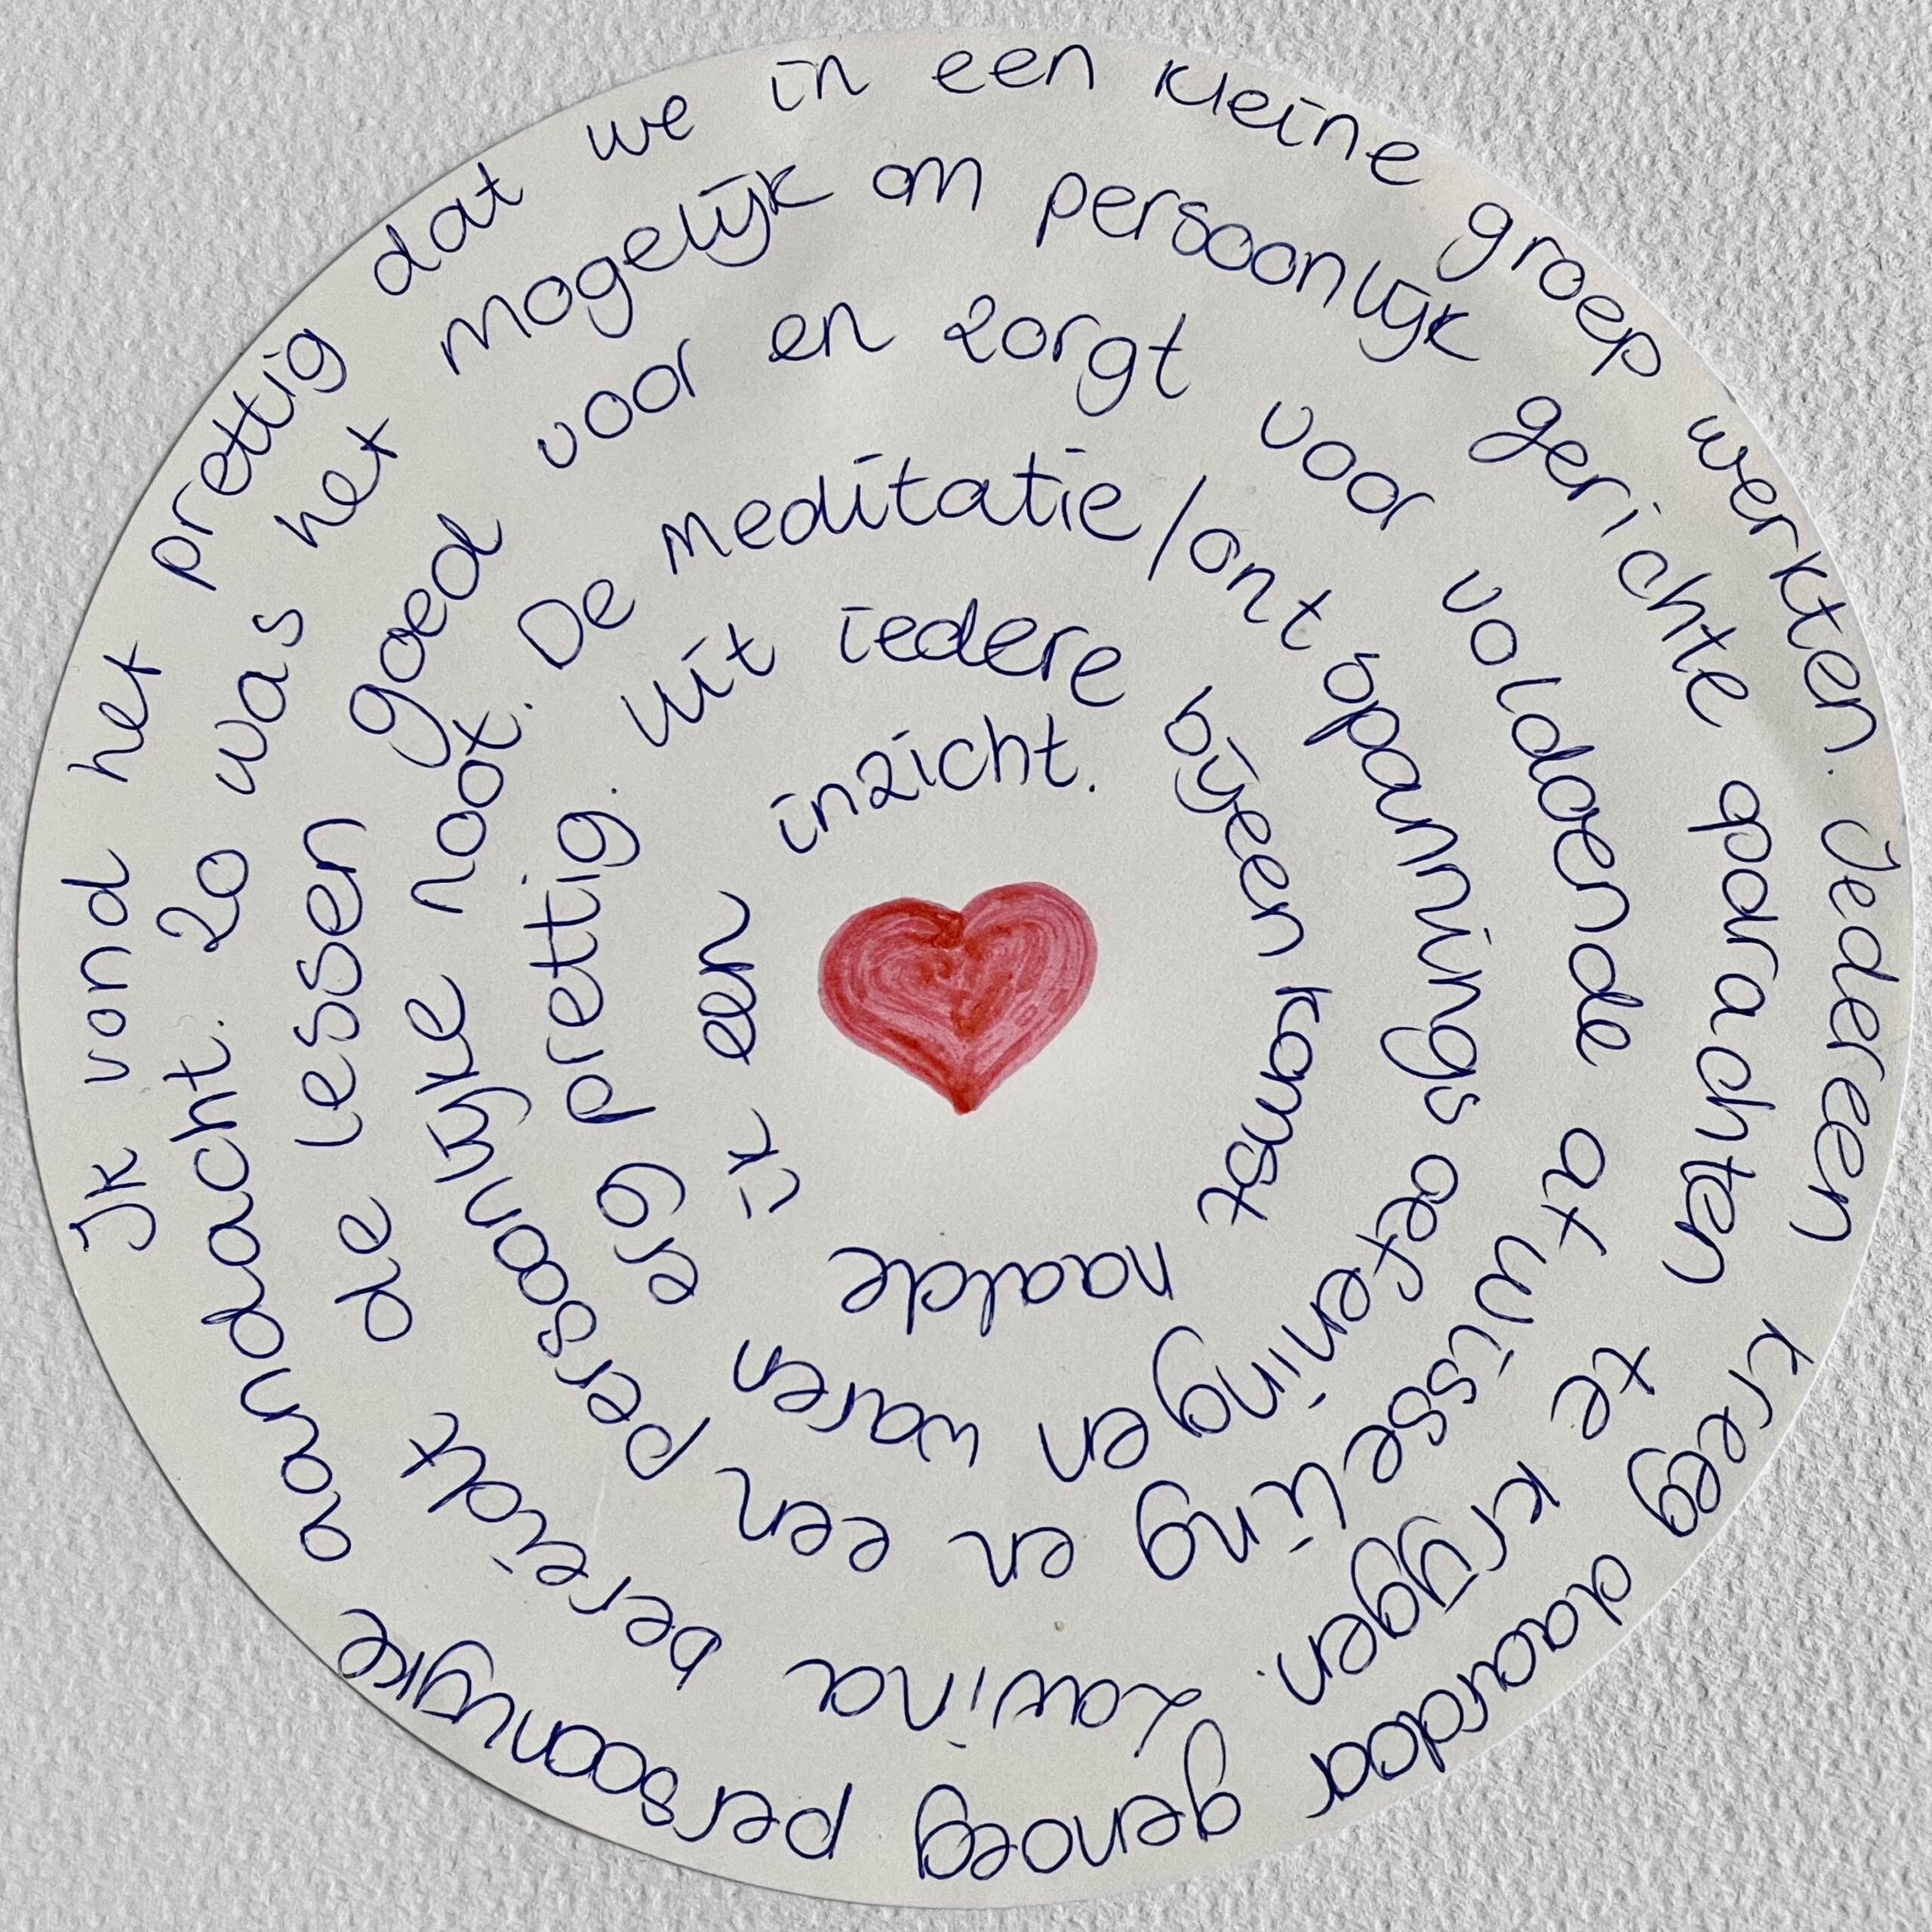 Ik vond het prettig dat we in een kleine groep werkten. Iedereen kreeg daardoor genoeg persoonlijke
aandacht. Zo was het mogelijk om persoonlijk gerichte opdrachten te krijgen. Lavina bereidt
de lessen goed voor en zorgt voor voldoende afwisseling en een persoonlijke noot. De meditatie/ontspannings oefeningen en waren erg prettig. Uit iedere bijeenkomst haalde ik een inzicht.